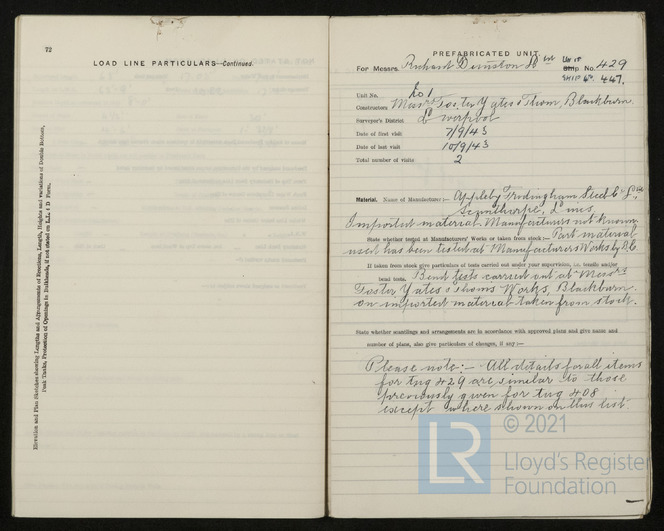 72
LOAD LINE PARTICULARS—Continued.
Elevation and Plan Sketches showing Lengths and Arrangements of Erections, Length, Heights and variations of Double Bottom,
Peak Tanks, Protection of Openings in Bulkheads, if not stated on L.L. 1 D Form.
PREFABRICATED UNIT.
For Messrs. Richard Dunston Ltd UNIT Ship No. 429
SHIP No. 447.
Unit No. No 1
Constructors Messrs Foster Yates & Thom, Blackburn.
Surveyor's District Liverpool
Date of first visit 7/9/43
Date of last visit 10/9/43
Total number of visits 2
Material. Name of Manufacturer:— Appleby Frodingham Steel Co Ltd,
Scunthorpe, Lincs
Imported material Manufacturers not known.
State whether tested at Manufacturers' Works or taken from stock:— Part material
used has been tested at Manufacturers Works by
If taken from stock give particulars of tests carried out under your supervision, i.e. tensile and/or
bend tests. Bend tests carried out at Messrs
Foster Yates & Thoms Works, Blackburn
on imported material taken from stock.
State whether scantlings and arrangements are in accordance with approved plans and give name and
number of plans, also give particulars of changes, if any:—
Please note:- All details for all items
for tug 429 are similar to those
previously given for tug 408
except where shown on this list.
© 2021
LR
Lloyd's Register
Foundation